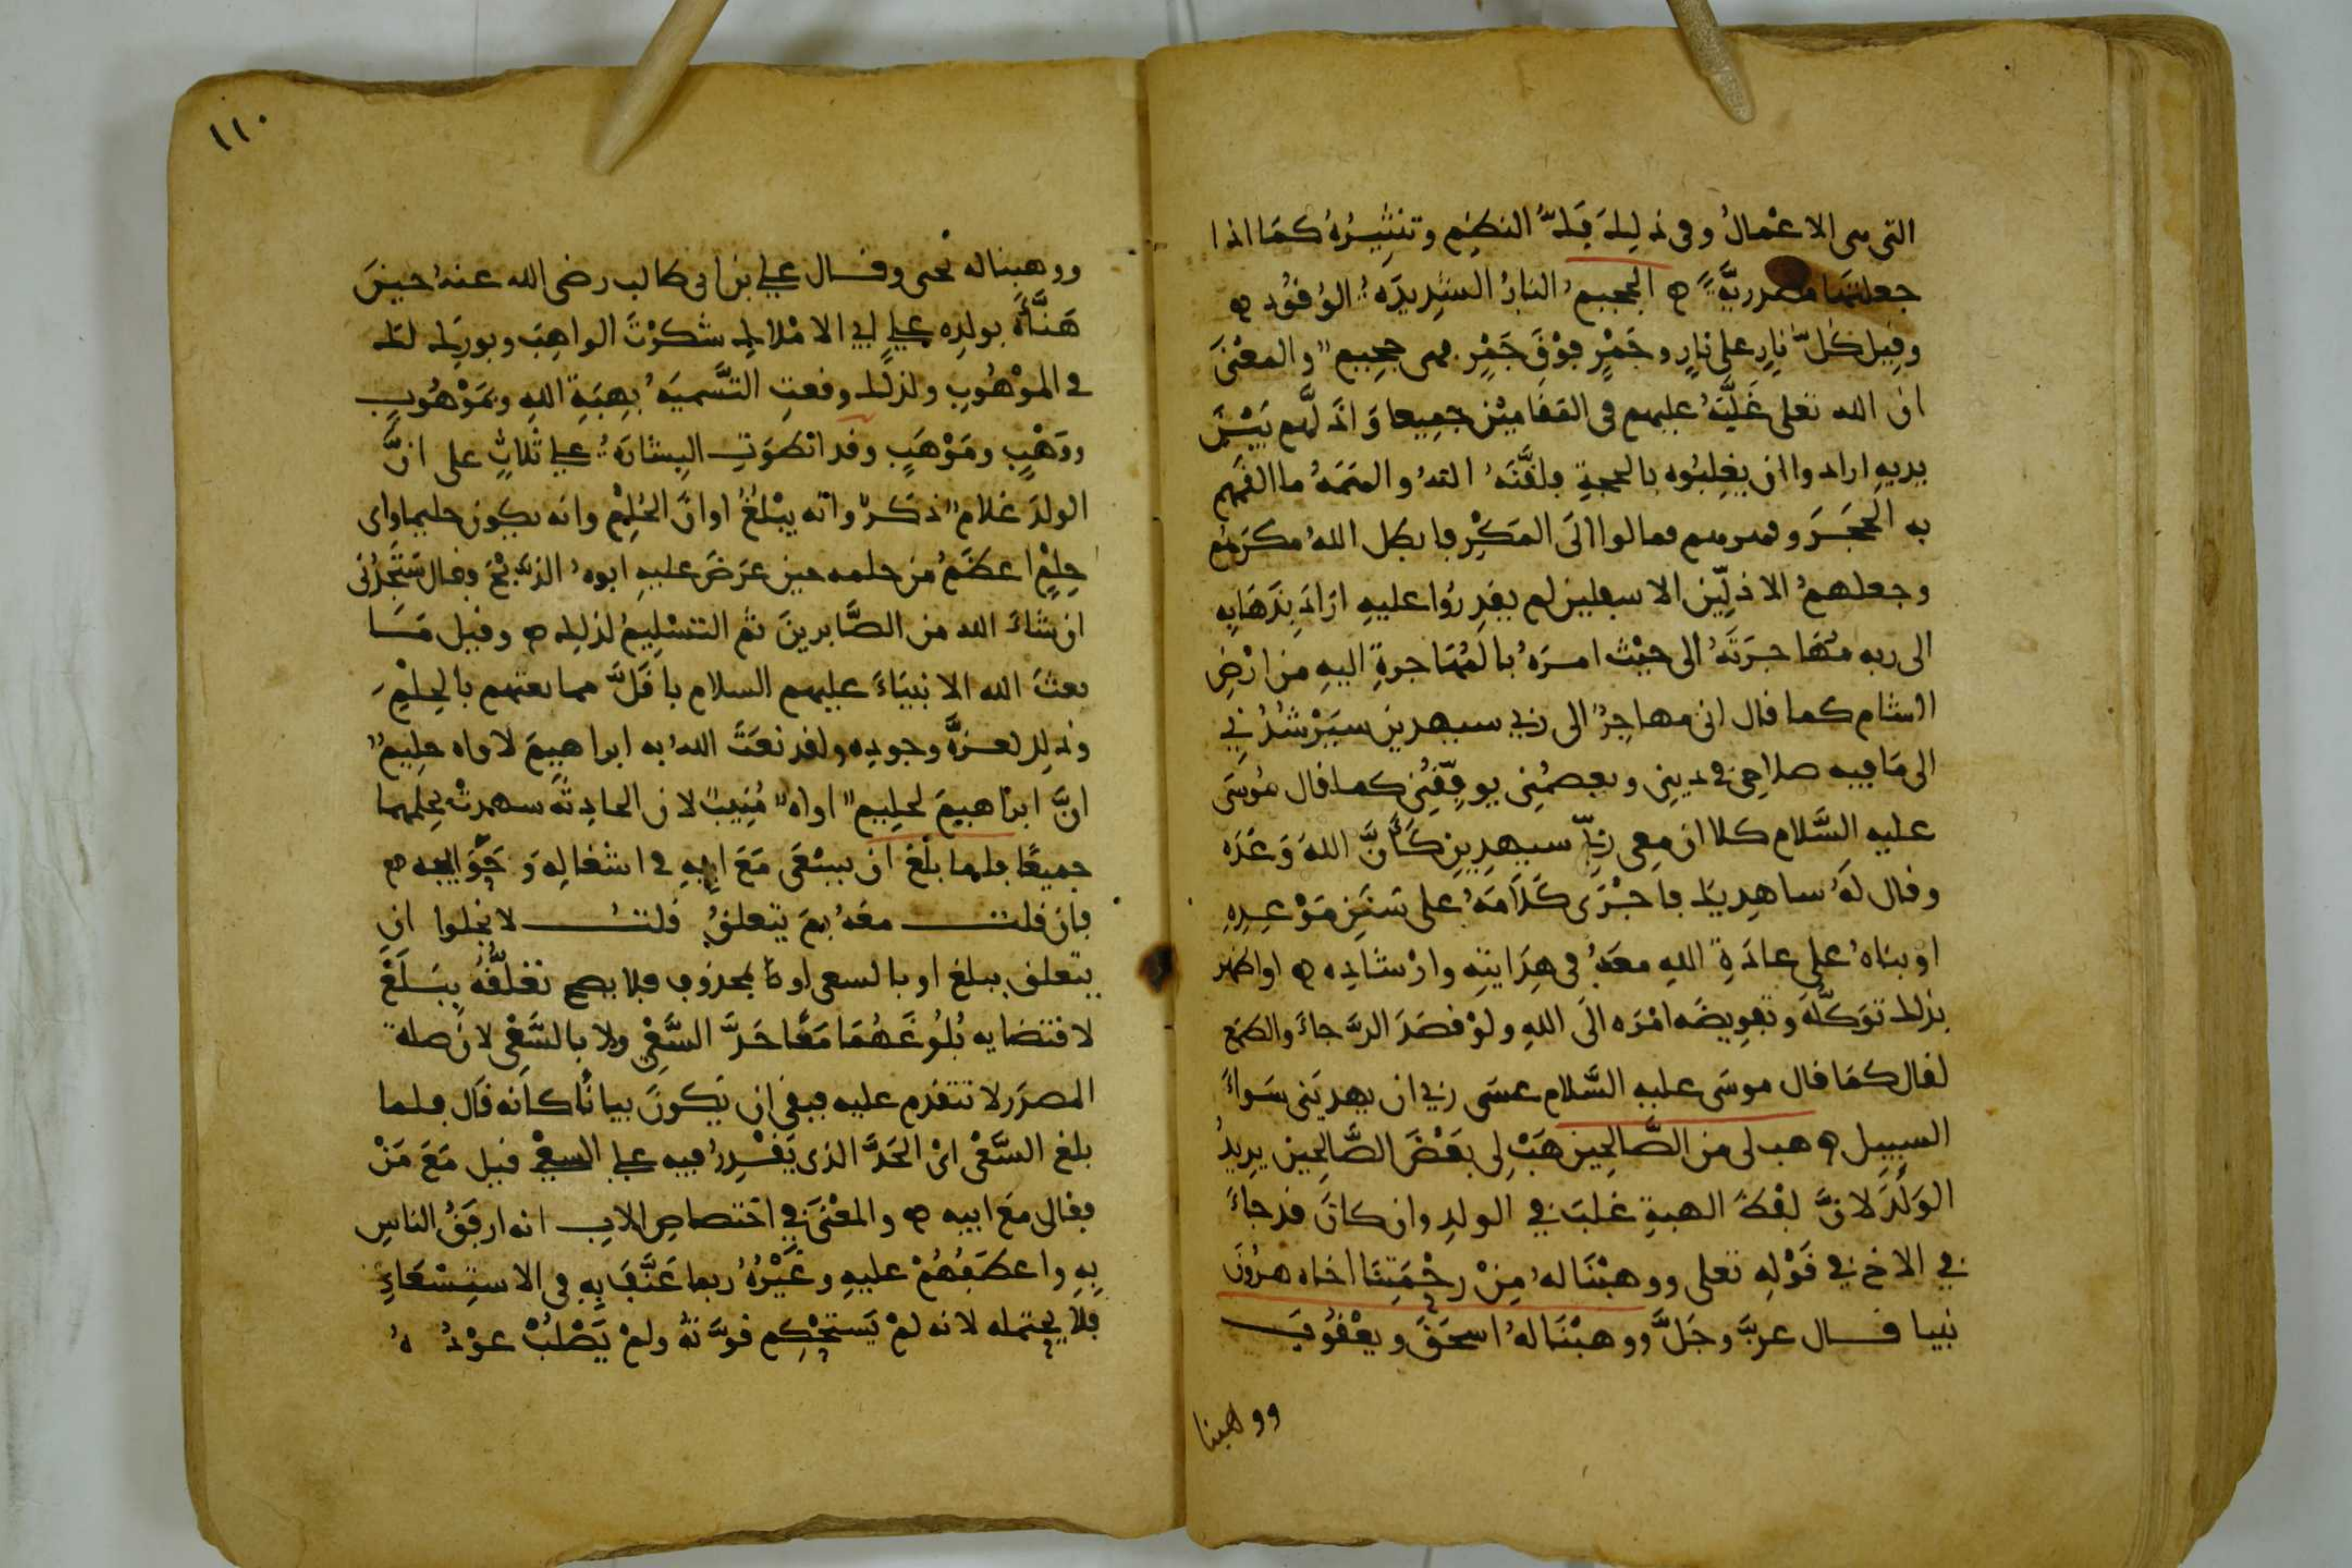 التى هى الاعمال وفى ذلك فكُّ النظم وتنثيرُهُ كما اذا
جعلتها مصدريةً ه الجحيمُ النارُ الشديدَةُ الوُقود ه
وقيل كلُّ نارٍ على نارٍ وجَمْرٍ فوْقَ جَمْرٍ فهى جحيم والمعْنَى
ان الله تعلى غَلَّبَهُ عليهم فى المقامَيْن جميعا وَاذَلَّهم بَيْنَ
يديه ارادوا ان يغلِبُوه بالحجةِ فلقَّنَهُ اللهُ والهَمَهُ ما القَمَهم
به الحَجَرَ وقهرهم فمالوا الَى المَكْرِ فابطل اللهُ مكرَهم
وجعلهمُ الاذلِّين الاسفلين لم يقدِرُوا عليهِ ارَادَ بذَهَابِهِ
الى ربه مُهَاجَرَتَهُ الى حيْثُ امرَهُ بالمُهَاجرةِ اليهِ من ارْضِ
الشام كما قال انى مهاجِرٌ الى ربي سيهدين سيَرْشُدُنِي
الى مَا فيه صلاحِى فى دينِى ويعصِمُنِى يوفِّقُنِى كما قال مُوسَى
عليه السَّلام كلا ان معِى ربِّى سيهدِين كَأَنَّ اللهَ وَعَدَه
وقال لَهُ ساهديك فاجْرَى كَلَامَهُ على سَنَنِ مَوْعِدِهِ
او بناهُ على عادَةِ اللهِ معَهُ فى هِدَايتِهِ وارْشَادِه ه او اظهر
بذلك توَكُّلَه وتفويضَه امْرَه الَى اللهِ ولوْ قصَدَ الرَّجاءَ والطمَع
لقال كمَا قال موسَى عليه السَّلام عسَى ربي ان يهديَنى سَواءَ
السبيل ه هب لى من الصَّالحِين هَبْ لِى بعْضَ الصَّالحِين يريدُ
الوَلَدَ لانَّ لفْظَ الهبةِ غلبَ فى الولدِ وان كانَ قد جاءَ
فى الاخ فى قوْلِهِ تعلى ووهبْنَا لهُ مِنْ رحْمَتِنَا اخاه هرُونَ
نبيا قال عزَّ وجَلَّ ووهبْنَا لهُ اسحَقَ ويعْقُوبَ
ووهبنا
١١٠
ووهبنا له يحيى وقال علي بن ابى طالب رضى الله عنهُ حينَ
هَنَّأَهُ بولدِه علي ابي الاملاك شكرْتَ الواهِبَ وبورِكَ لكَ
فى الموْهُوبِ ولذلك وقعتِ التَّسميَةُ بِهِبَةِ اللهِ وبمَوْهُوبٍ
ووَهْبٍ ومَوْهَبٍ وقد انطوَتِ البِشَارَةُ علي ثلاثٍ على انَّ
الولدَ غلامٌ ذكَرٌ وانه يبْلُغُ اوانَ الحُلْمِ وانه يكون حليما واى
حِلْمٍ اعظَمُ من حلمه حين عرَضَ عليهِ ابوهُ الذبْحَ فقال سَتَجِدُنى
ان شاءَ الله من الصَّابرينَ ثم التسْلِيمُ لذلك ه وقيل مَا
بعثَ الله الانبيَاءَ عليهم السلام باقَلَّ مما بعثهم بالحِلْمِ
وذلك لعزَّةِ وجودِه ولقد نعَتَ اللهُ به ابراهيمَ لاواه حليمٌ
انَّ ابرَاهيمَ لحليمٌ اواهٌ مُنيبٌ لان الحادِثةَ شهدتْ بحِلمهما
جميعًا فلما بلَغَ ان يسْعَى مَعَ ابيهِ فى اشغالِه وَحَوَايجه ه
فان قلت معَهُ بِمَ يتعلقُ قلتُ لا يخلوا ان
يتعلق ببلغ او بالسعى او بمحذوف فلا يصح تعَلُّقُهُ بِبَلَغَ
لاقتضايه بُلُوغَهُمَا مَعًا حَدَّ السَّعْيِ ولا بِالسَّعْىِ لان صلة
المصدَر لا تتقدم عليه فبقى ان يَكونَ بيانًا كانه قال فلما
بلغ السَّعْىَ اىْ الحَدَّ الذى يَقْدِرُ فيه علي السعي قيل مَعَ مَنْ
فقال معَ ابيه ه والمعْنَى فِي اختصاصِ الابِ انه ارفَقُ الناسِ
بِهِ واعطفُهُمْ عليهِ وغَيْرُهُ ربما عَنَّفَ بِهِ فى الاستِسْعَاءِ
فلا يحتمله لانه لمْ يَستحْكِم قوَّتُهُ ولمْ يَصْلُبْ عوْدُهُ